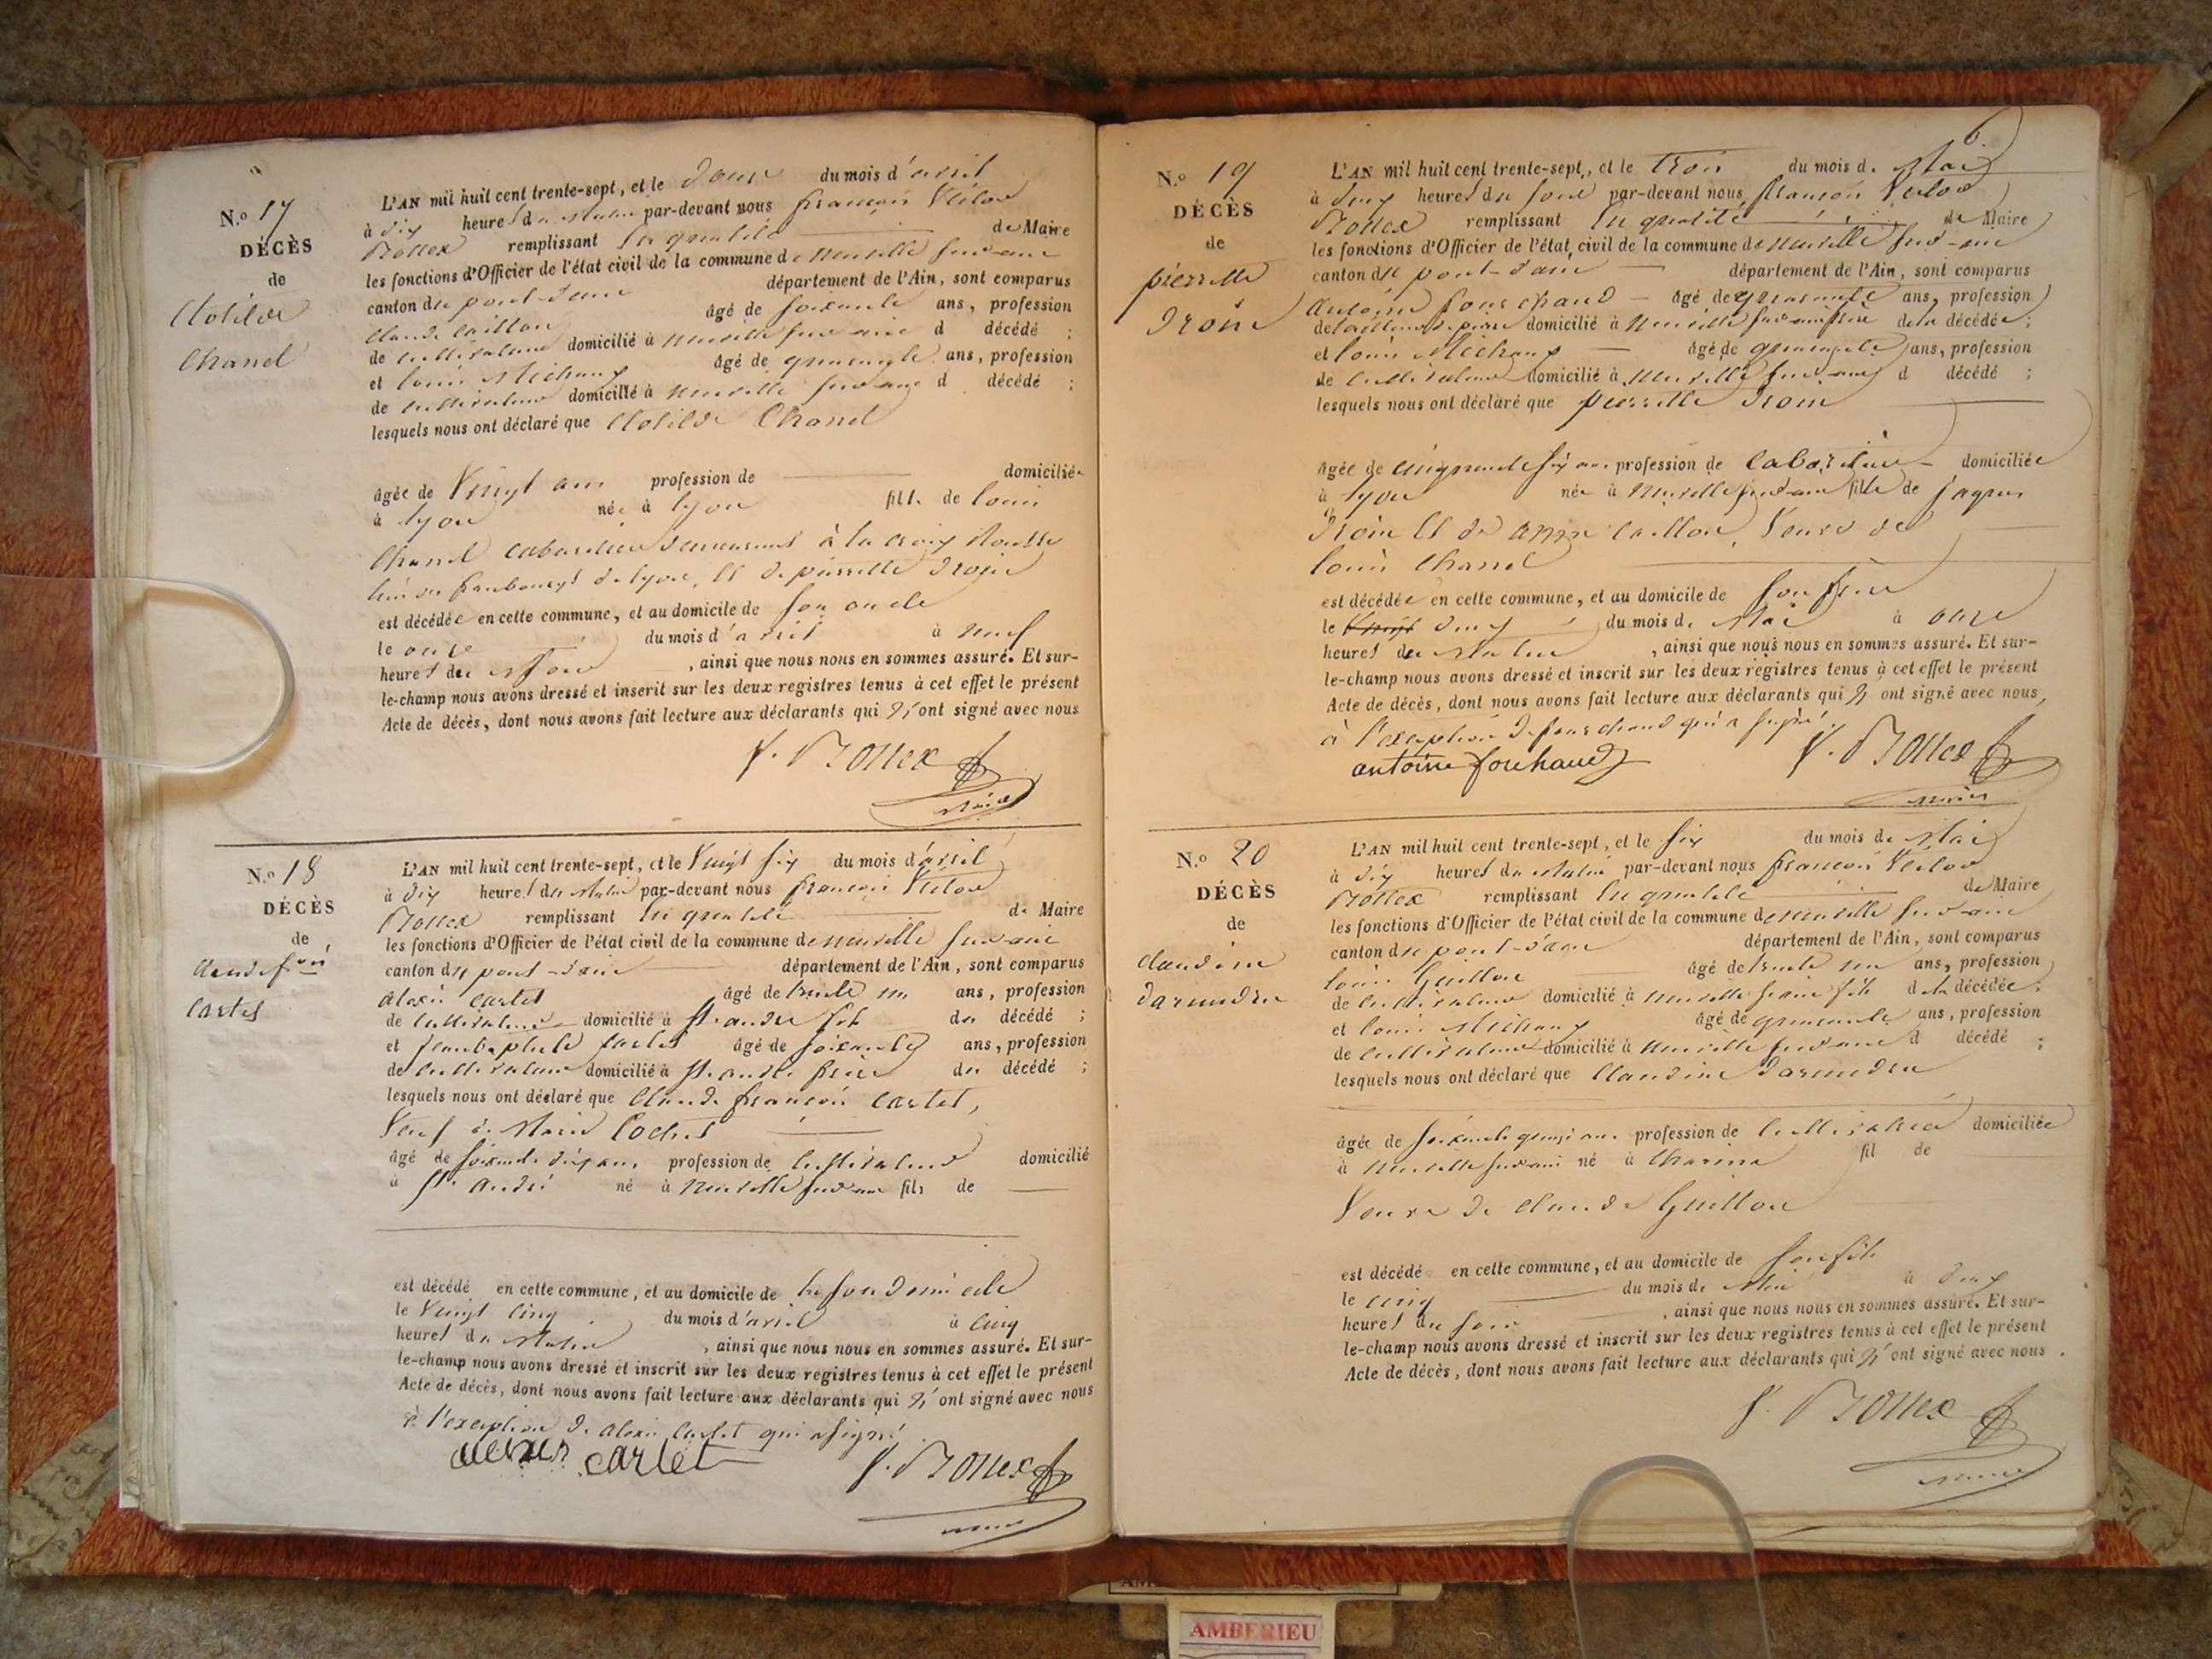 N.o 17
DÉCÈS
de
Clotilde
Chanel
L'AN mil huit cent trente-sept, et le douze du mois d'avril
à dix heures du matin par-devant nous françois
remplissant la qualité de Maire
les fonctions d'Officier de l'état civil de la commune de neuville sur ain
canton du pont-d'ain département de l'Ain, sont comparus
claude caillon âgé de soixante ans, profession
de cultivateur domicilié à neuville sur ain d décédé ;
et louis Michaux âgé de quarante ans, profession
de cultivateur domicilié à neuville sur ain d décédé ;
lesquels nous ont déclaré que Clotilde Chanel
âgée de vingt ans profession de domiciliée
à lyon née à lyon fille de louis
Chanel cabaretier demeurant à la croix Rousse
l'un des faubourgs de lyon, et de pierrette
est décédée en cette commune, et au domicile de son oncle
le onze du mois d'avril à neuf
heures du soir, ainsi que nous nous en sommes assuré. Et sur-
le-champ nous avons dressé et inscrit sur les deux registres tenus à cet effet le présent
Acte de décès, dont nous avons fait lecture aux déclarants qui n'ont signé avec nous
maire
N.o 18
DÉCÈS
de
claude f.ois
cartet
L'AN mil huit cent trente-sept, et le vingt six du mois d'avril
à dix heures du matin par-devant nous françois
remplissant la qualité de Maire
les fonctions d'Officier de l'état civil de la commune de neuville sur ain
canton du pont-d'ain département de l'Ain, sont comparus
alexis cartet âgé de trente un ans, profession
de cultivateur domicilié à St. andré fils du décédé ;
et jean baptiste cartet âgé de soixante ans, profession
de cultivateur domicilié à St. andré frère du décédé ;
lesquels nous ont déclaré que Claude françois cartet,
veuf de Marie Cochet
âgé de soixante dix ans profession de cultivateur domicilié
à St. andré né à neuville sur ain fils de
est décédé en cette commune, et au domicile de en son domicile
le vingt cinq du mois d'avril à cinq
heures du matin, ainsi que nous nous en sommes assuré. Et sur-
le-champ nous avons dressé et inscrit sur les deux registres tenus à cet effet le présent
Acte de décès, dont nous avons fait lecture aux déclarants qui n'ont signé avec nous
à l'exception de alexis cartet qui a signé
alexis cartet
maire
6
N.o 19
DÉCÈS
de
pierrette
L'AN mil huit cent trente-sept, et le trois du mois de Mai
à deux heures du soir par-devant nous françois
remplissant la qualité de Maire
les fonctions d'Officier de l'état civil de la commune de neuville sur-ain
canton du pont-d'ain département de l'Ain, sont comparus
antoine fourchaud âgé de quarante ans, profession
de tailleur de pierre domicilié à neuville sur ain frère de la décédée ;
et louis Michaux âgé de quarante ans, profession
de cultivateur domicilié à neuville sur ain d décédé ;
lesquels nous ont déclaré que pierrette
âgée de cinquante six ans profession de cabaretière domiciliée
à lyon née à neuville sur ain fille de jaques
et de anne caillon, veuve de
louis Chanel
est décédée en cette commune, et au domicile de son frère
le deux du mois de Mai à onze
heures du matin, ainsi que nous nous en sommes assuré. Et sur-
le-champ nous avons dressé et inscrit sur les deux registres tenus à cet effet le présent
Acte de décès, dont nous avons fait lecture aux déclarants qui n'ont signé avec nous,
à l'exception de fourchaud qui a signé
antoine fouchaud
maire
N.o 20
DÉCÈS
de
claudine
L'AN mil huit cent trente-sept, et le six du mois de Mai
à dix heures du matin par-devant nous françois
remplissant la qualité de Maire
les fonctions d'Officier de l'état civil de la commune de neuville sur ain
canton du pont-d'ain département de l'Ain, sont comparus
louis Guillon âgé de trente un ans, profession
de cultivateur domicilié à neuville sur ain fils de la décédée ;
et louis Michaux âgé de quarante ans, profession
de cultivateur domicilié à neuville sur ain d décédé ;
lesquels nous ont déclaré que Claudine
âgée de soixante quinze ans profession de cultivatrice domiciliée
à neuville sur ain né à fil de
veuve de claude Guillon
est décédé en cette commune, et au domicile de son fils
le cinq du mois de Mai à deux
heures du soir, ainsi que nous nous en sommes assuré. Et sur-
le-champ nous avons dressé et inscrit sur les deux registres tenus à cet effet le présent
Acte de décès, dont nous avons fait lecture aux déclarants qui n'ont signé avec nous.
maire
AMBERIEU